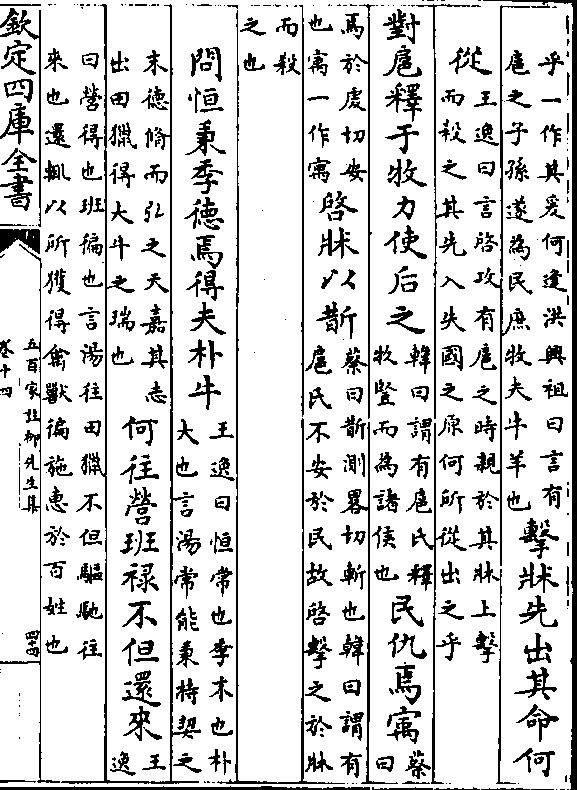 乎一作其爰何逢洪興祖曰言有
扈之子孫遂為民庶牧夫牛羊也
擊牀先出其命何
從
王逸曰言啓攻有扈之時親於其牀上擊
而殺之其先入失國之原何所從出之乎
對扈釋于牧力使后之
韓曰謂有扈氏釋
牧豎而為諸侯也
民仇焉㝢
蔡
曰
焉於虔切安
也㝢一作寓
啓牀以斮
蔡曰斮測畧切斬也韓曰謂有
扈氏不安於民故啓擊之於牀
而殺
之也
問恒秉季德焉得夫朴牛
王逸曰恒常也季末也朴
大也言湯常能秉持契之
末德脩而弘之天嘉其志
出田獵得大牛之瑞也
何往營班禄不但還來
王
逸
曰營得也班徧也言湯往田獵不但驅馳往
來也還輙以所獲得禽獸徧施惠於百姓也
欽定四庫全書
五百家註柳先生集
卷十四